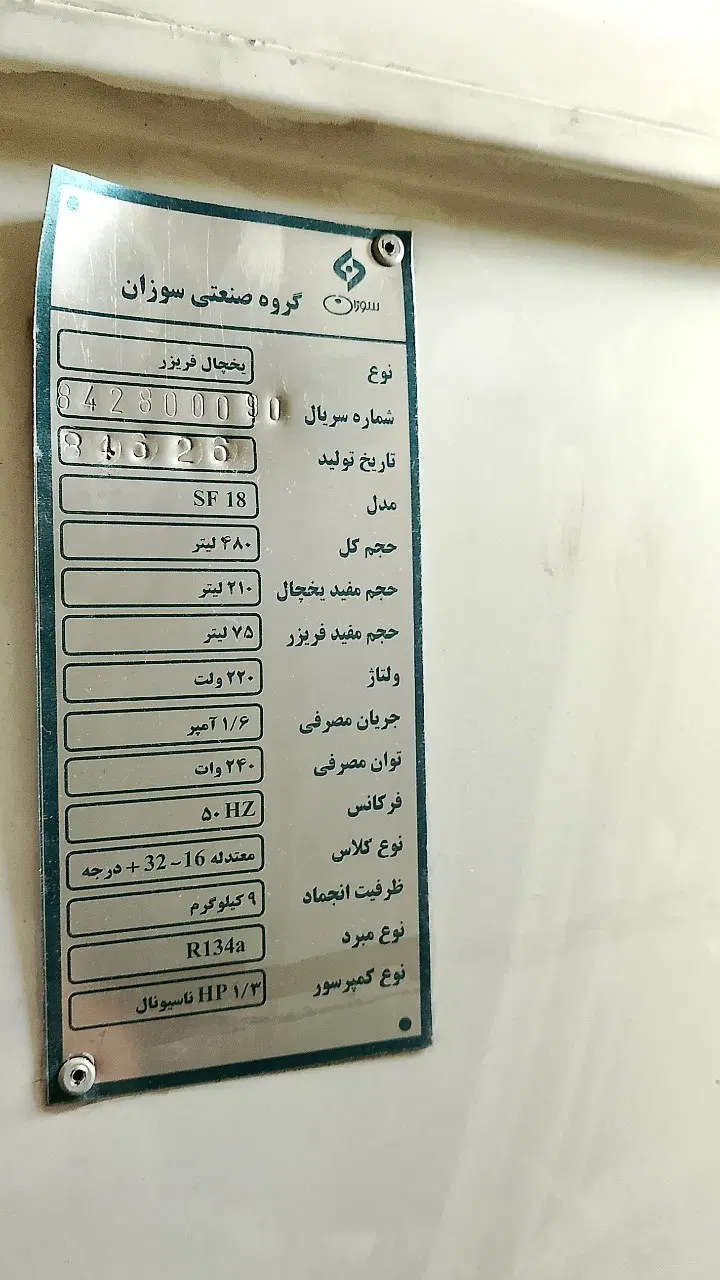 سوزان
گروه صنعتی سوزان
نوع یخچال فریزر
شماره سریال 842800090
تاریخ تولید 84 6 26
مدل SF 18
حجم کل ۴۸۰ لیتر
حجم مفید یخچال ۲۱۰ لیتر
حجم مفید فریزر ۷۵ لیتر
ولتاژ ۲۲۰ ولت
جریان مصرفی ۱/۶ آمپر
توان مصرفی ۲۴۰ وات
فرکانس ۵۰ HZ
نوع کلاس معتدله 16 ~ 32 + درجه
ظرفیت انجماد ۹ کیلوگرم
نوع مبرد R134a
نوع کمپرسور ۱/۳ HP ناسیونال